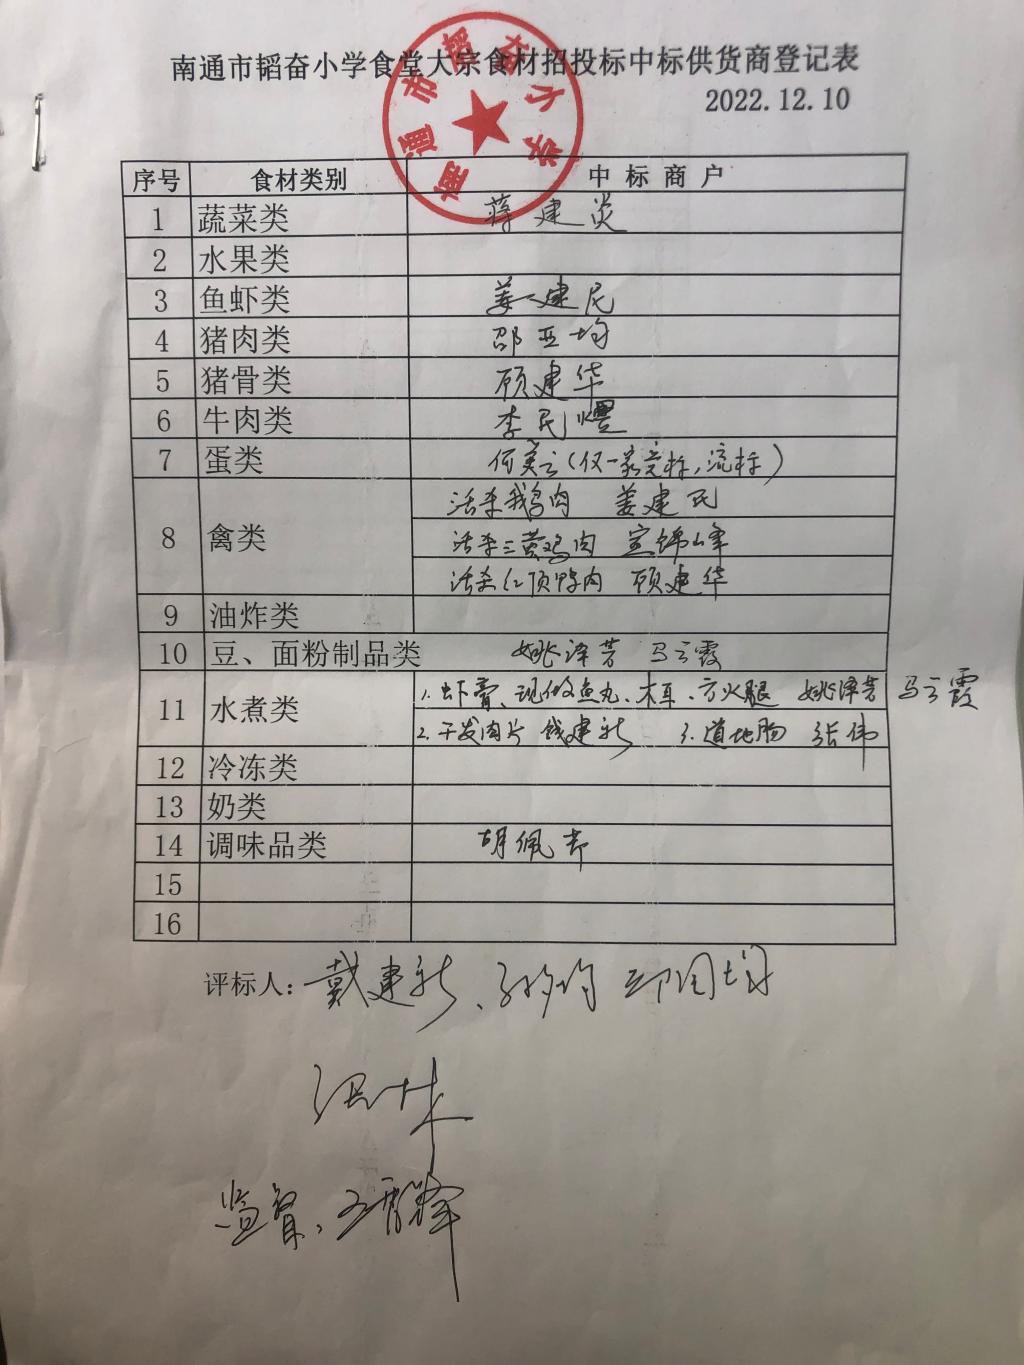 南通市韬奋小学食堂大宗食材招投标中标供货商登记表
2022.12.10
南通市韬奋小学
序号 食材类别 中标商户
1 蔬菜类 蒋建炎
2 水果类
3 鱼虾类 姜建民
4 猪肉类 邵亚均
5 猪骨类 顾建华
6 牛肉类 李民
7 蛋类 何美云(仅一家竞标,流标)
8 禽类 活杀鹅肉 姜建民
活杀三黄鸡肉 宣锦峰
活杀红顶鸭肉 顾建华
9 油炸类
10 豆、面粉制品类 姚泽芳 马云霞
11 水煮类 1.虾膏、现做鱼丸、木耳、方火腿 姚泽芳 马云霞
2.干发肉片 钱建新 3.道地肠 张伟
12 冷冻类
13 奶类
14 调味品类 胡佩
15
16
评标人: 戴建新、
监督、